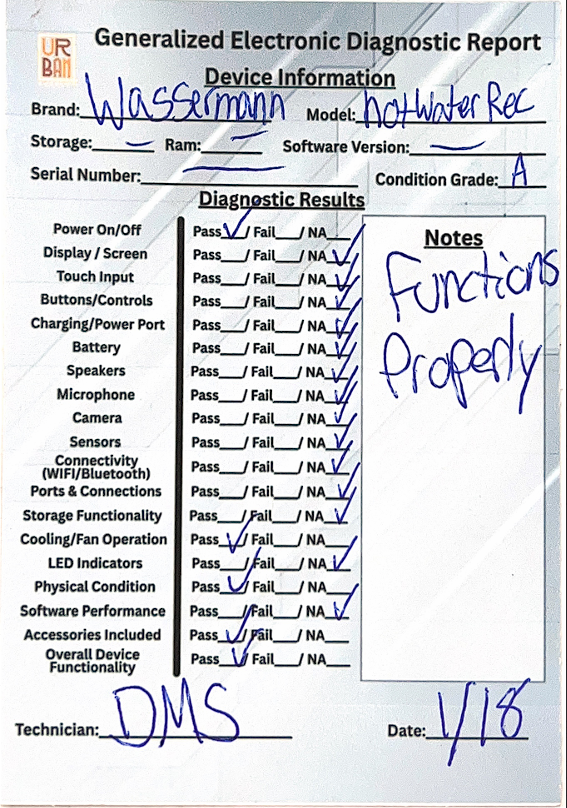 UR
BAN
Generalized Electronic Diagnostic Report
Device Information
Brand: Wassermann Model: hotwater Rec
Storage: — Ram: — Software Version: —
Serial Number: — Condition Grade: A
Diagnostic Results
Power On/Off Pass ✓/ Fail / NA
Display / Screen Pass / Fail / NA ✓
Touch Input Pass / Fail / NA ✓
Buttons/Controls Pass / Fail / NA ✓
Charging/Power Port Pass / Fail / NA ✓
Battery Pass / Fail / NA ✓
Speakers Pass / Fail / NA ✓
Microphone Pass / Fail / NA ✓
Camera Pass / Fail / NA ✓
Sensors Pass / Fail / NA ✓
Connectivity
(WIFI/Bluetooth) Pass / Fail / NA ✓
Ports & Connections Pass / Fail / NA ✓
Storage Functionality Pass / Fail / NA ✓
Cooling/Fan Operation Pass ✓/ Fail / NA
LED Indicators Pass / Fail / NA ✓
Physical Condition Pass ✓/ Fail / NA
Software Performance Pass / Fail / NA ✓
Accessories Included Pass ✓/ Fail / NA
Overall Device
Functionality Pass ✓/ Fail / NA
Notes
Functions
Properly
Technician: DMS Date: 1/18